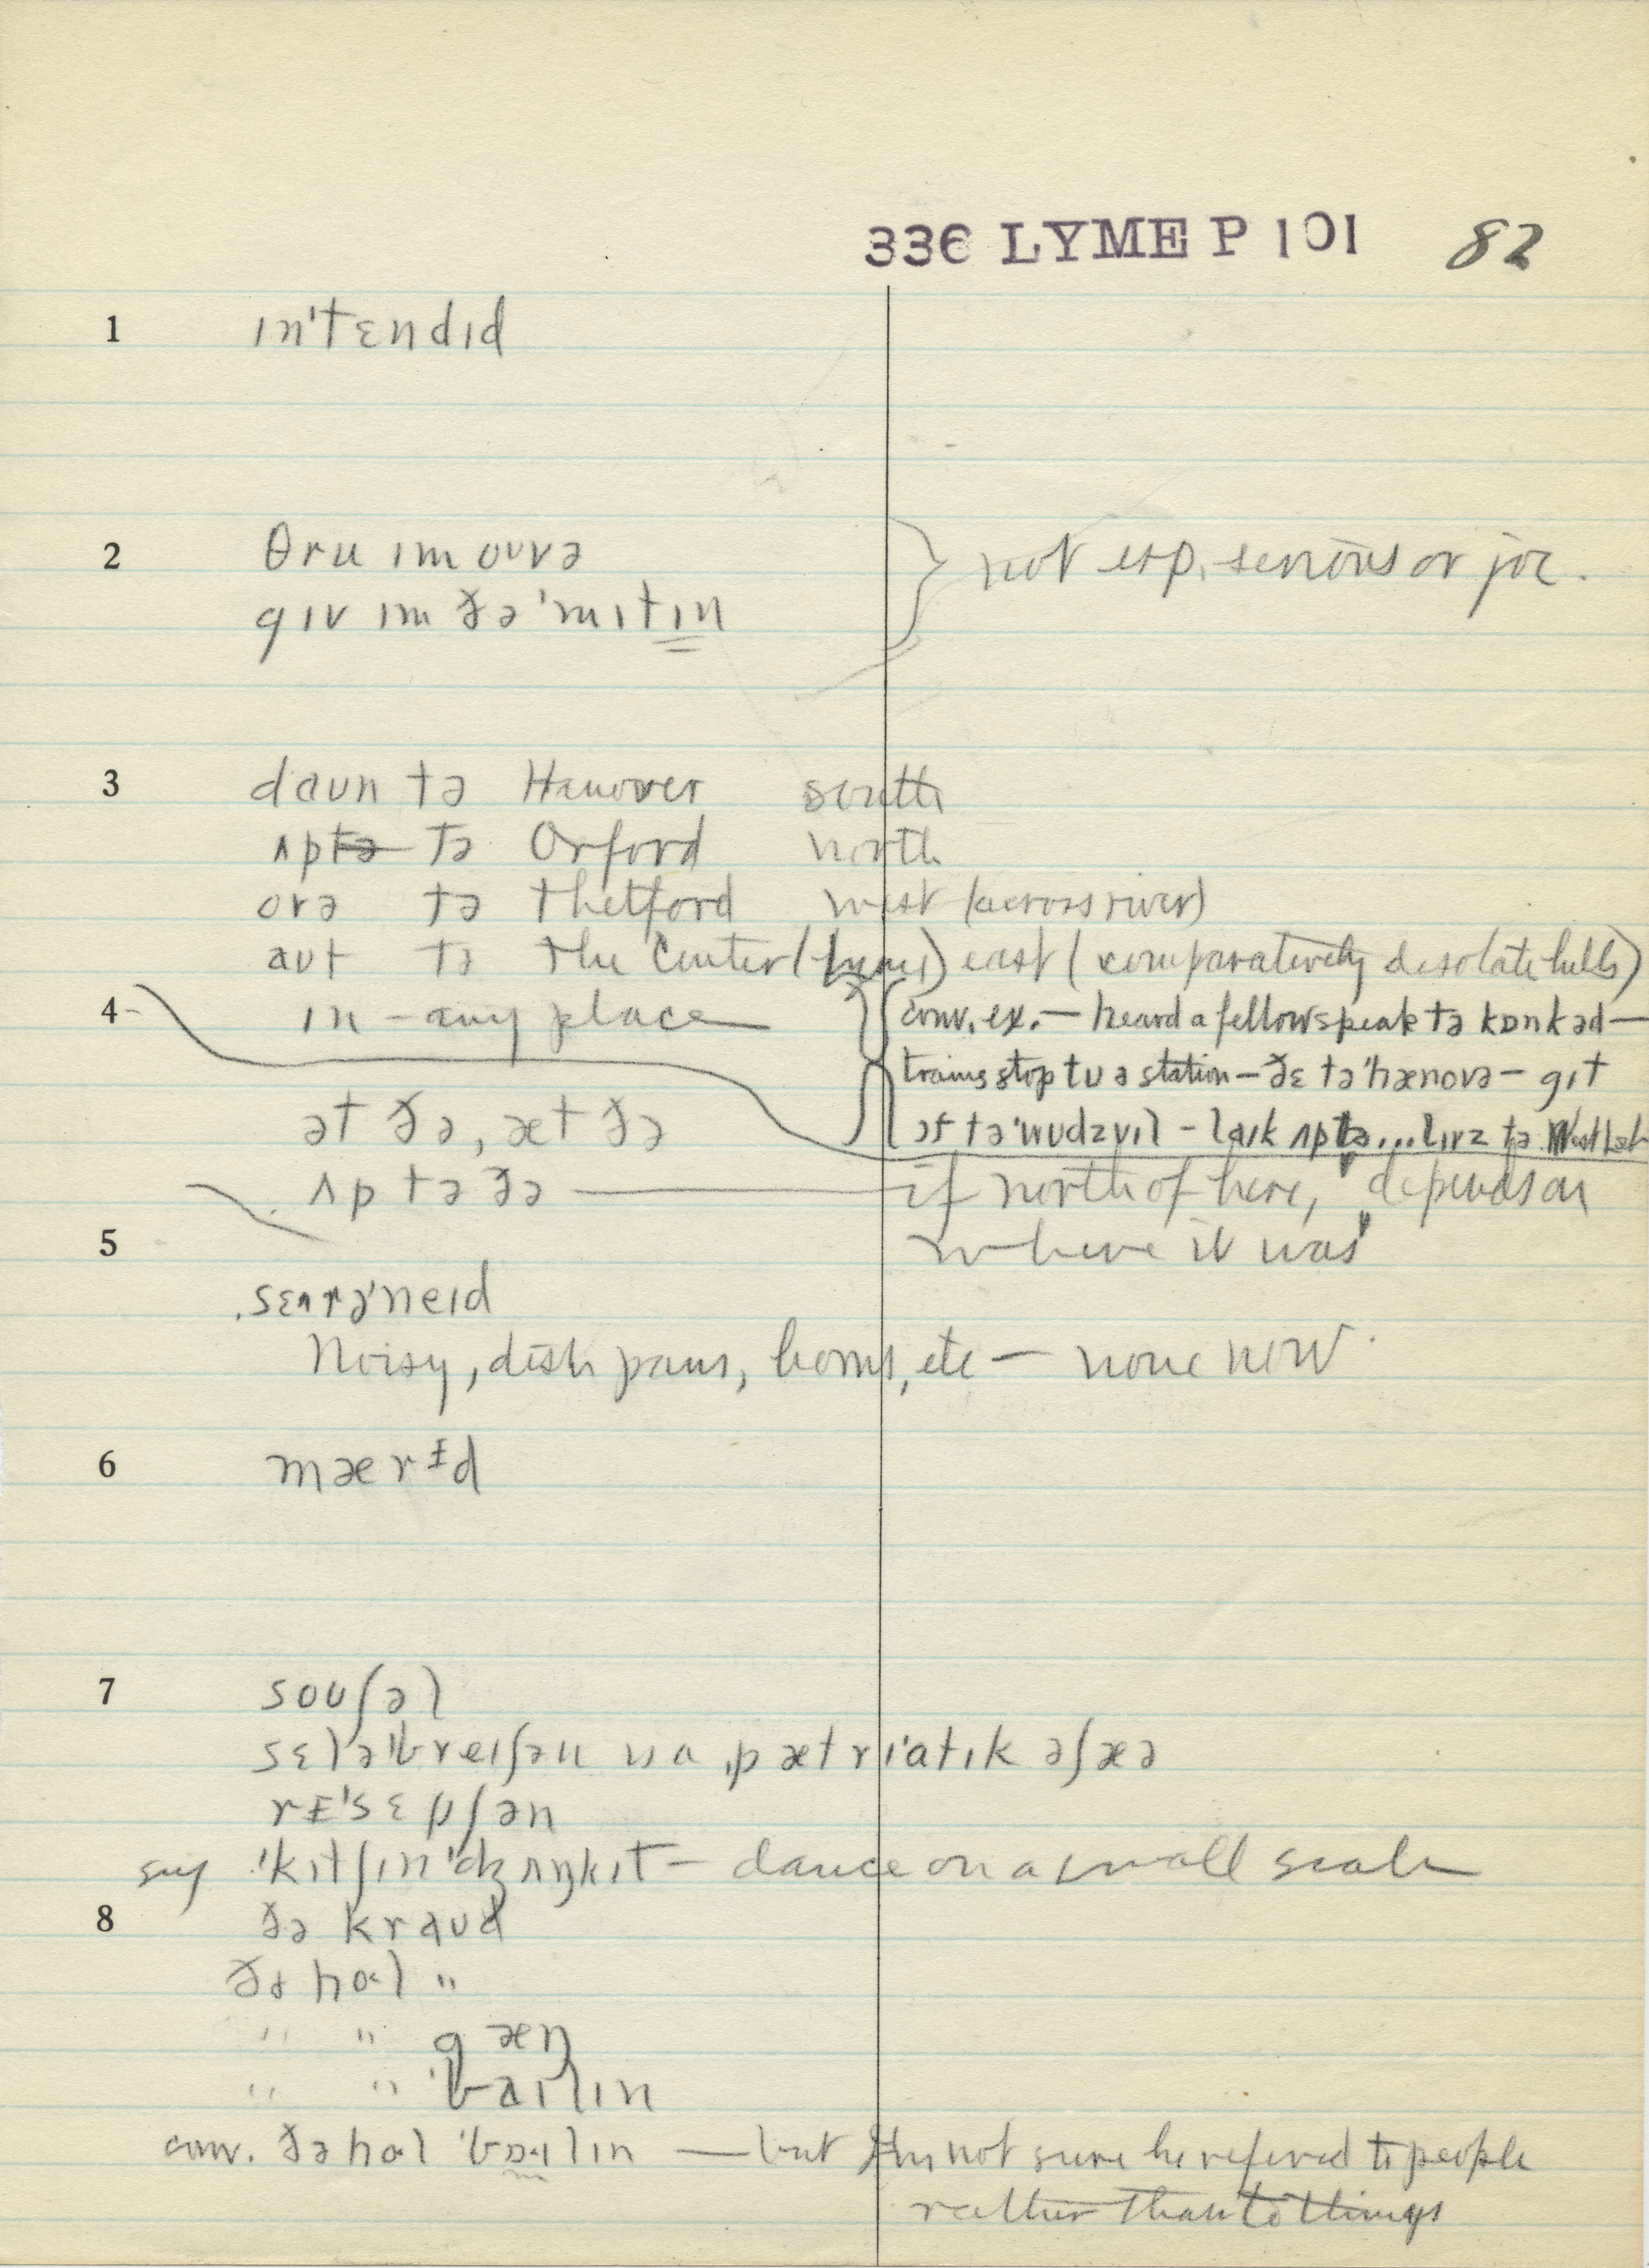 336 LYME P 101 82
1 ɪn'tɛndɪd
2 θru ɪm ouvə
gɪv ɪm ðə 'mɪtɪn
not esp. serious or joc.
3 daʊn tə Hanover south
ʌp tə Orford north
ovə tə Thetford west (across river)
aʊt tə the Center (Lyme) east (comparatively desolate hills)
4 in – any place
conv. ex. — heard a fellow speak tə kɒnkəd —
trains stop tʊ ə station – ðɛ tə 'hænovə – gɪt
ɔf tə 'wudzvɪl – laɪk ʌp tə ... lɪvz tə West
ət ðə, æt ðə
ʌp tə ðə — if north of here, "depends on
where it was"
5
sɛʌrə'neɪd
Noisy, dish pans, horns, etc — none now
6 mærɪd
7 souʃəl
sɛlə'breɪʃən ɪs a ˌpætrɪ'atɪk əfæə
rɪ'sɛpʃən
sug 'kɪtʃɪn 'dʒʌŋkɪt – dance on a small scale
8 ðə kraʊd
ðə hol "
" " gæŋ
" " 'baɪlɪn
conv. ðə hol 'bɒɪlɪn — but I'm not sure he refered to people
rather than to things